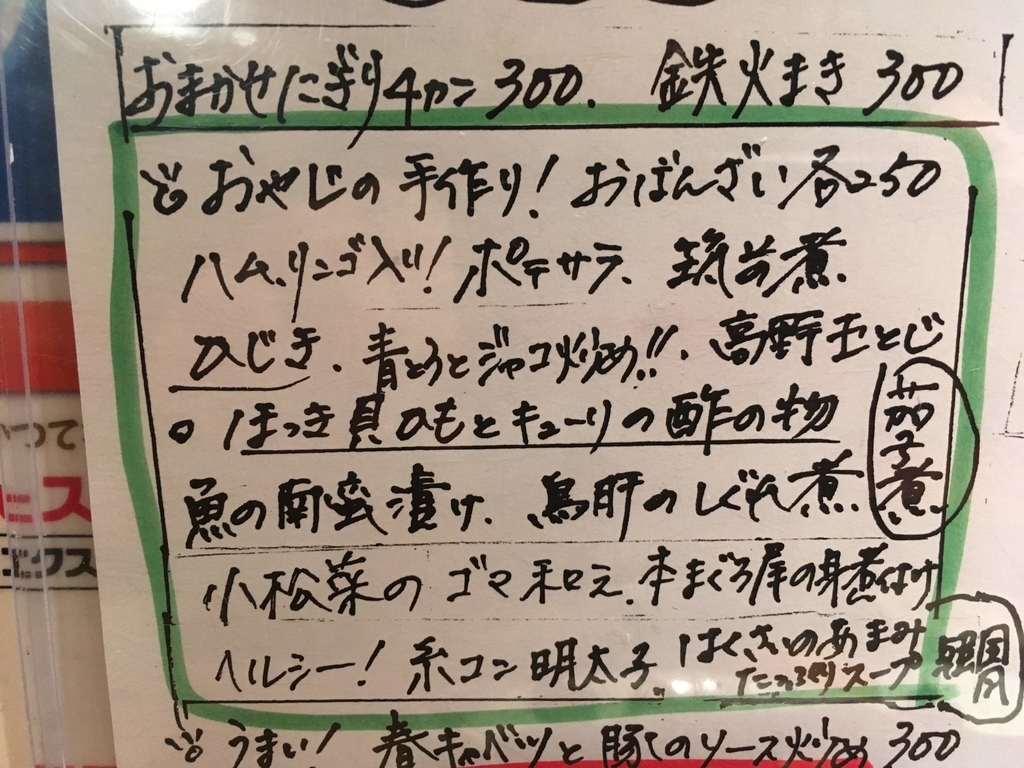 おまかせにぎり4カン 300. 鉄火まき 300
おやじの手作り! おばんざい各250
ハム、リンゴ入り! ポテサラ、筑前煮、
ひじき、青とうとジャコ炒め!!、高野玉とじ
ほっき貝ひもとキューリの酢の物
茄子煮
魚の南蛮漬け、鳥肝のしぐれ煮
小松菜のゴマ和え、本まぐろ尾の身煮付け
ヘルシー! 糸コン明太子、はくさいのあまみ
たっぷりスープ
うまい! 春キャベツと豚くのソース炒め 300
かつて
ース
エクス